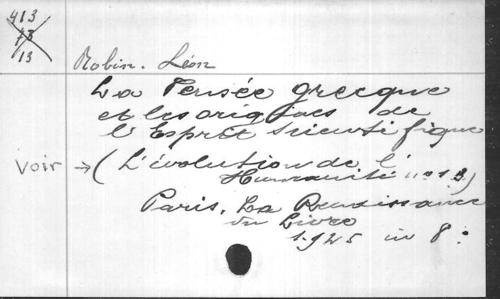 413
13
13
Robin. Léon
La Pensée grecque
et les origines de
l'Esprit scientifique
Voir → ( L'évolution de l'
Humanité n° 13)
Paris, La Renaissance
du Livre
1925 in 8: